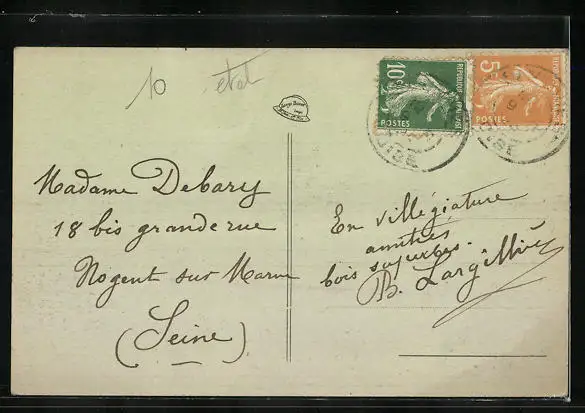 10 état
Madame Debary
18 bis grande rue
Nogent sur Marne
(Seine)
En villégiature
amitiés
bois superbes.
B. Largillière
10c
REPUBLIQUE FRANÇAISE
POSTES
5c
POSTES
OISE